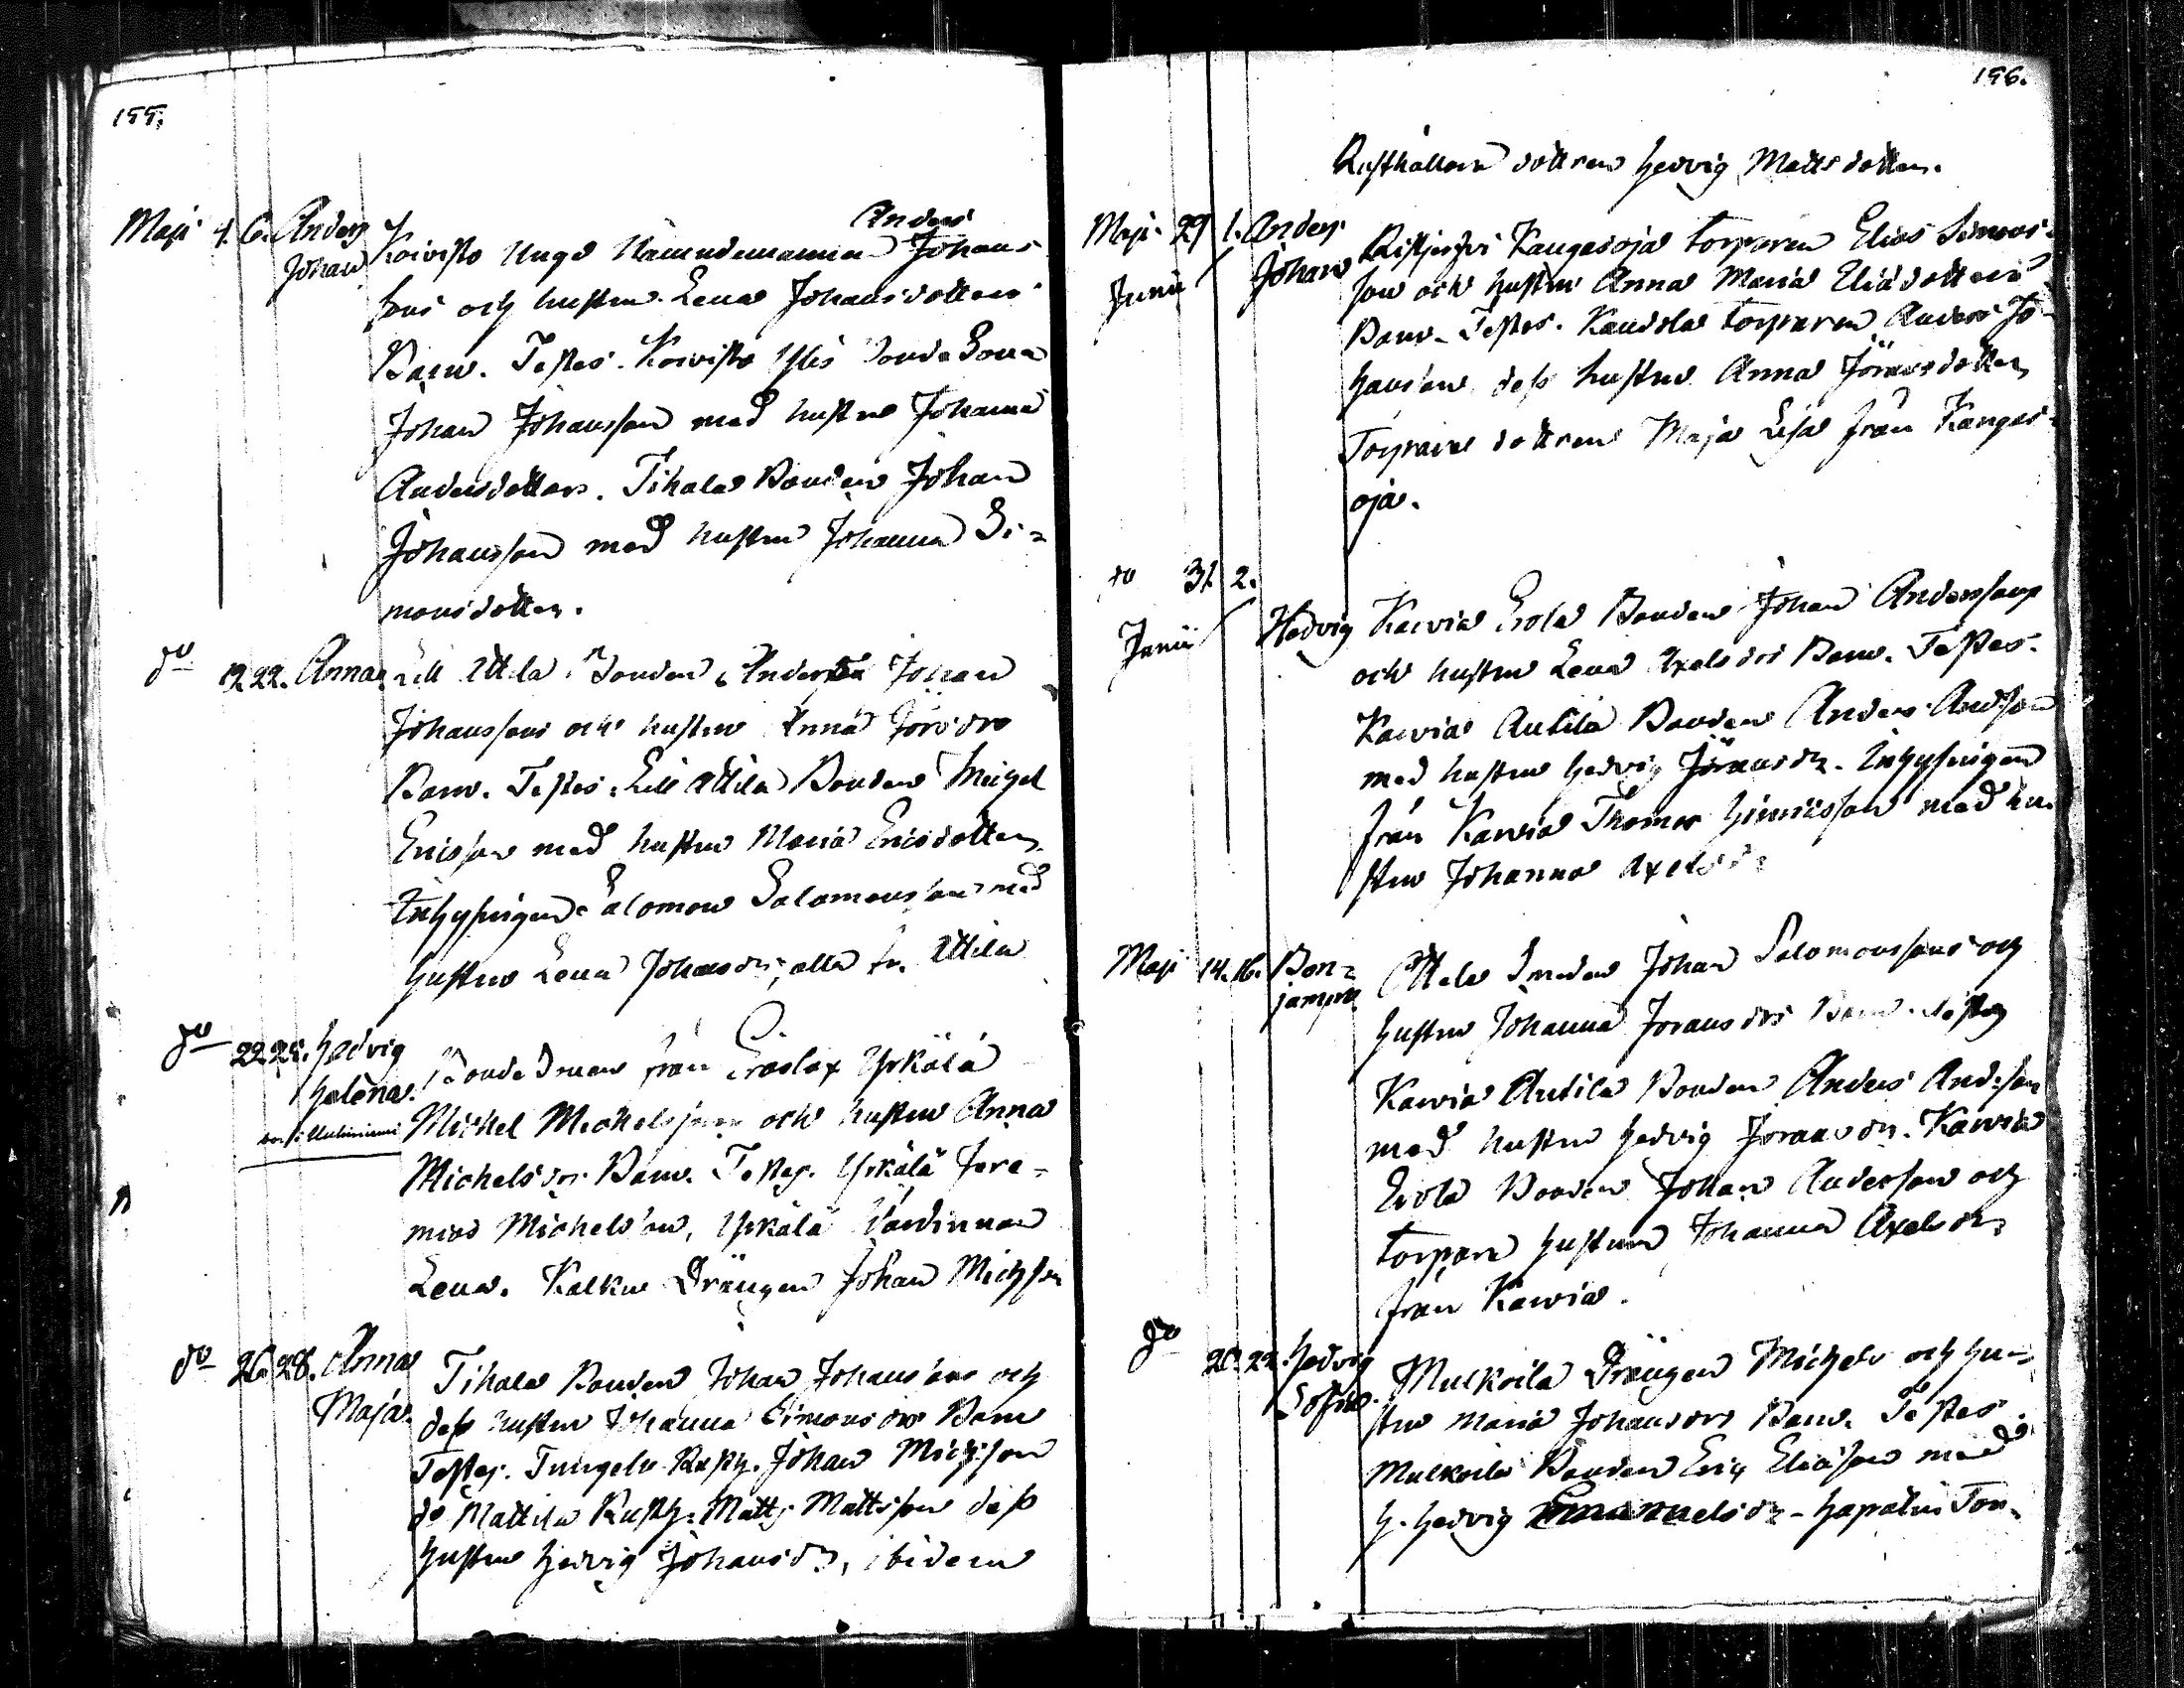 155.
Maji 4. 6. Anders Johan Koivisto Unge Nämndemannen Anders Johans
sons och hustru Lena Johansdotters
Barn. Testes. Koivisto Ylis Bonde Sonen
Johan Johansson med hustru Johanna
Andersdotter. Tihala Bonden Johan
Johansson med hustru Johanna Si-
monsdotter.
do 19. 22. Anna Lill Attila Bonden Johan
Johanssons och hustru Anna Jörsdrs
Barn. Testes: Lill Attila Bonden Michel
Ericsson med hustru Maria Ericsdotter
Inhysingen Salomon Salomonsson med
hustru Lena Johansdr, alla fr. Attila
do 22. 25. Hedvig Helena. Bonde Sonen från Yrkälä
Michel Michelssons och hustru Anna
Michelsdrs Barn. Testes. Yrkälä Jere-
mias Michelsson, Yrkälä Värdinnan
Lena. Kalku Drängen Johan Michsson
do 26. 28. Anna Maja. Tihala Bonden Johan Johanssons och
dess hustru Johanna Simonsdrs Barn
Testes. Rusth. Johan Michsson
do Mattila Rusth. Matts Mattsson dess
hustru Hedvig Johansdr, ibidem
156.
Rusthållare dottren Hedvig Mattsdotter.
Maji 29 / 1. Junii Anders Johan Kangasoja torparen Elias Simons-
son och hustru Anna Maria Eliædotters
Barn. Testes. Kandola torparen Anders Jo-
hansson dess hustru Anna Jöransdotter,
Torpare dottren Maja Lisa från Kangas-
oja.
do 31 / 2. Junii Hedvig Karvia Erola Bonden Johan Anderssons
och hustru Lena Axelsdrs Barn. Testes.
Karvia Antila Bonden Anders Andsson
med hustru Hedvig Jöransdr. Inhysingen
från Karvia Thomas Hinricsson med hu-
stru Johanna Axelsdr
Maji 14. 16. Ben-
jamin. Attala Johan Salomonssons och
hustru Johanna Joransdrs Barn. Testes
Karvia Antila Bonden Anders Andsson
med hustru Hedvig Joransdr. Karvia
Erola Bonden Johan Andersson och
torpare hustrun Johanna Axelsdr,
från Karvia.
do 20. 22. Hedvig Sofia. Mulkoila Drängen Michels och hu-
stru Maria Johansdrs Barn. Testes.
Mulkoila Bonden Eric Eliasson med
h. Hedvig Emanuelsdr - Tor-